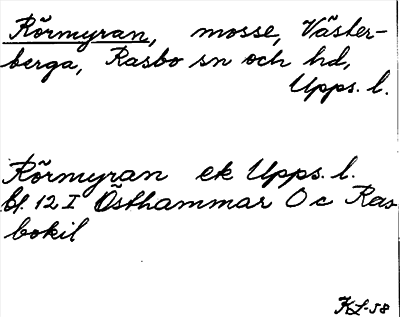 Rörmyran, mosse, Väster-
berga, Rasbo sn och hd,
Upps. l.
Rörmyran ek Upps. l.
bl. 12 I Östhammar O c Ras
bokil
KL-58